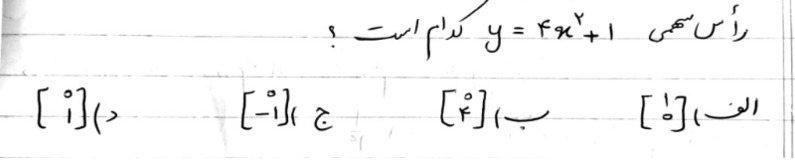 رأس سهمی y = ۴x²+۱ کدام است ؟
الف) [۱ ۰] ب) [۰ ۴] ج) [۰ -۱] د) [۰ ۱]